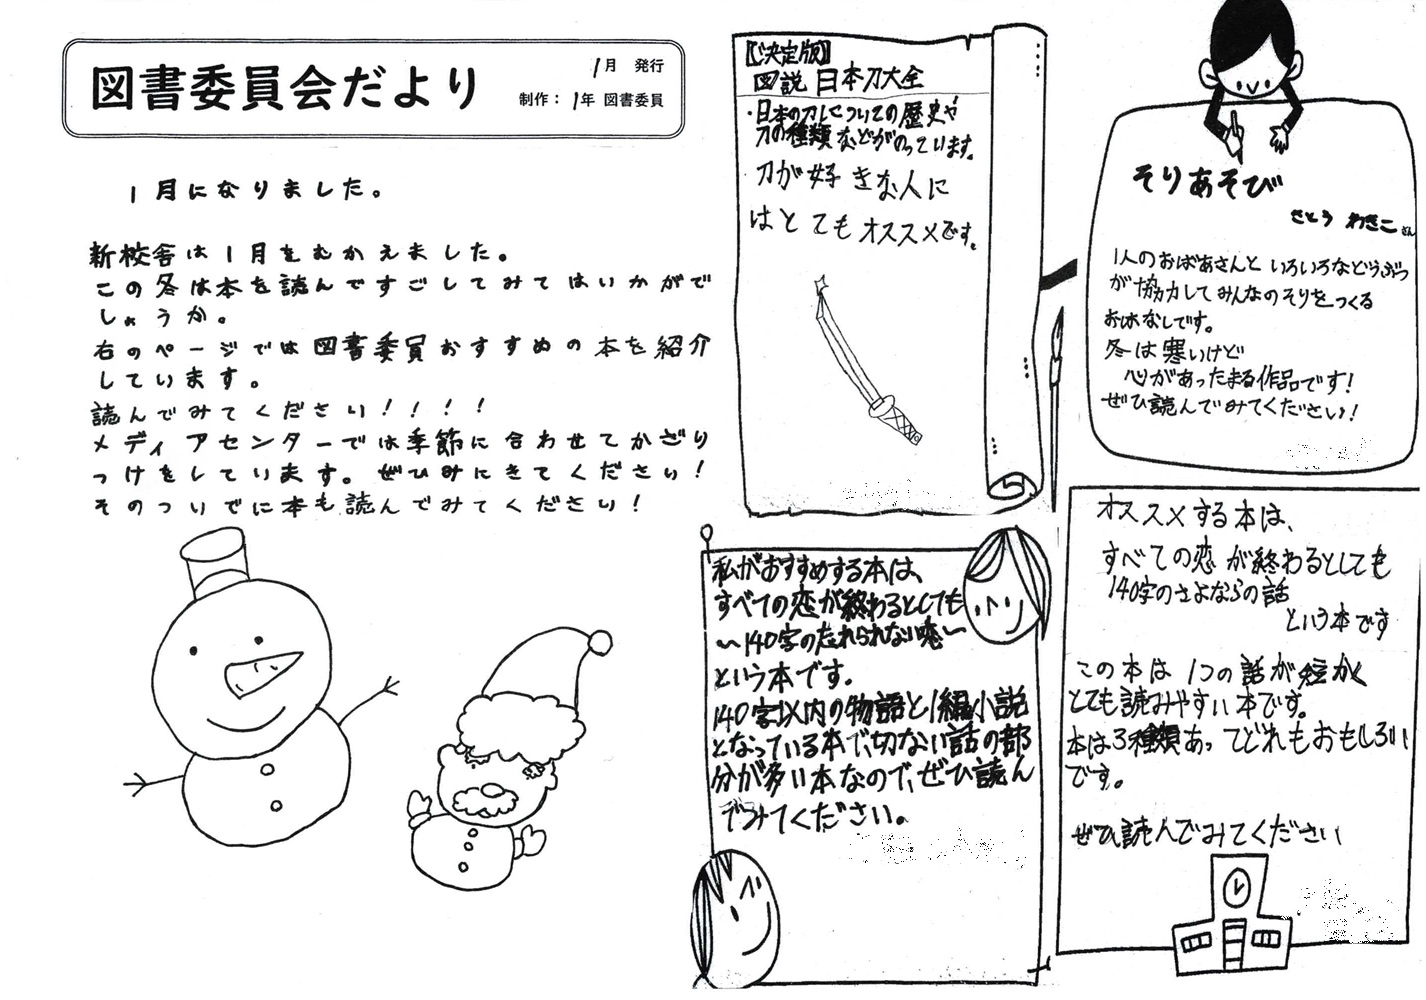 図書委員会だより
1月 発行
制作： 1年 図書委員
1月になりました。
新校舎は1月をむかえました。
この冬は本を読んですごしてみてはいかがで
しょうか。
右のページでは図書委員おすすめの本を紹介
しています。
読んでみてください！！！！
メディアセンターでは季節に合わせてかざり
つけをしています。ぜひみにきてください！
そのついでに本も読んでみてください！
【決定版】
図説 日本刀大全
・日本の刀についての歴史や
刀の種類などがのっています。
刀が好きな人に
はとてもオススメです。
そりあそび
さとう わきこさん
1人のおばあさんといろいろなどうぶつ
が協力してみんなのそりをつくる
おはなしです。
冬は寒いけど
心があったまる作品です！
ぜひ読んでみてください！
私がおすすめする本は、
すべての恋が終わるとしても
〜140字の忘れられない恋〜
という本です。
140字以内の物語と1編小説
となっている本で、切ない話の部
分が多い本なので、ぜひ読ん
でみてください。
オススメする本は、
すべての恋が終わるとしても
140字のさよならの話
という本です
この本は 1つの話が短かく
とても読みやすい本です。
本は3種類あってどれもおもしろい
です。
ぜひ読んでみてください